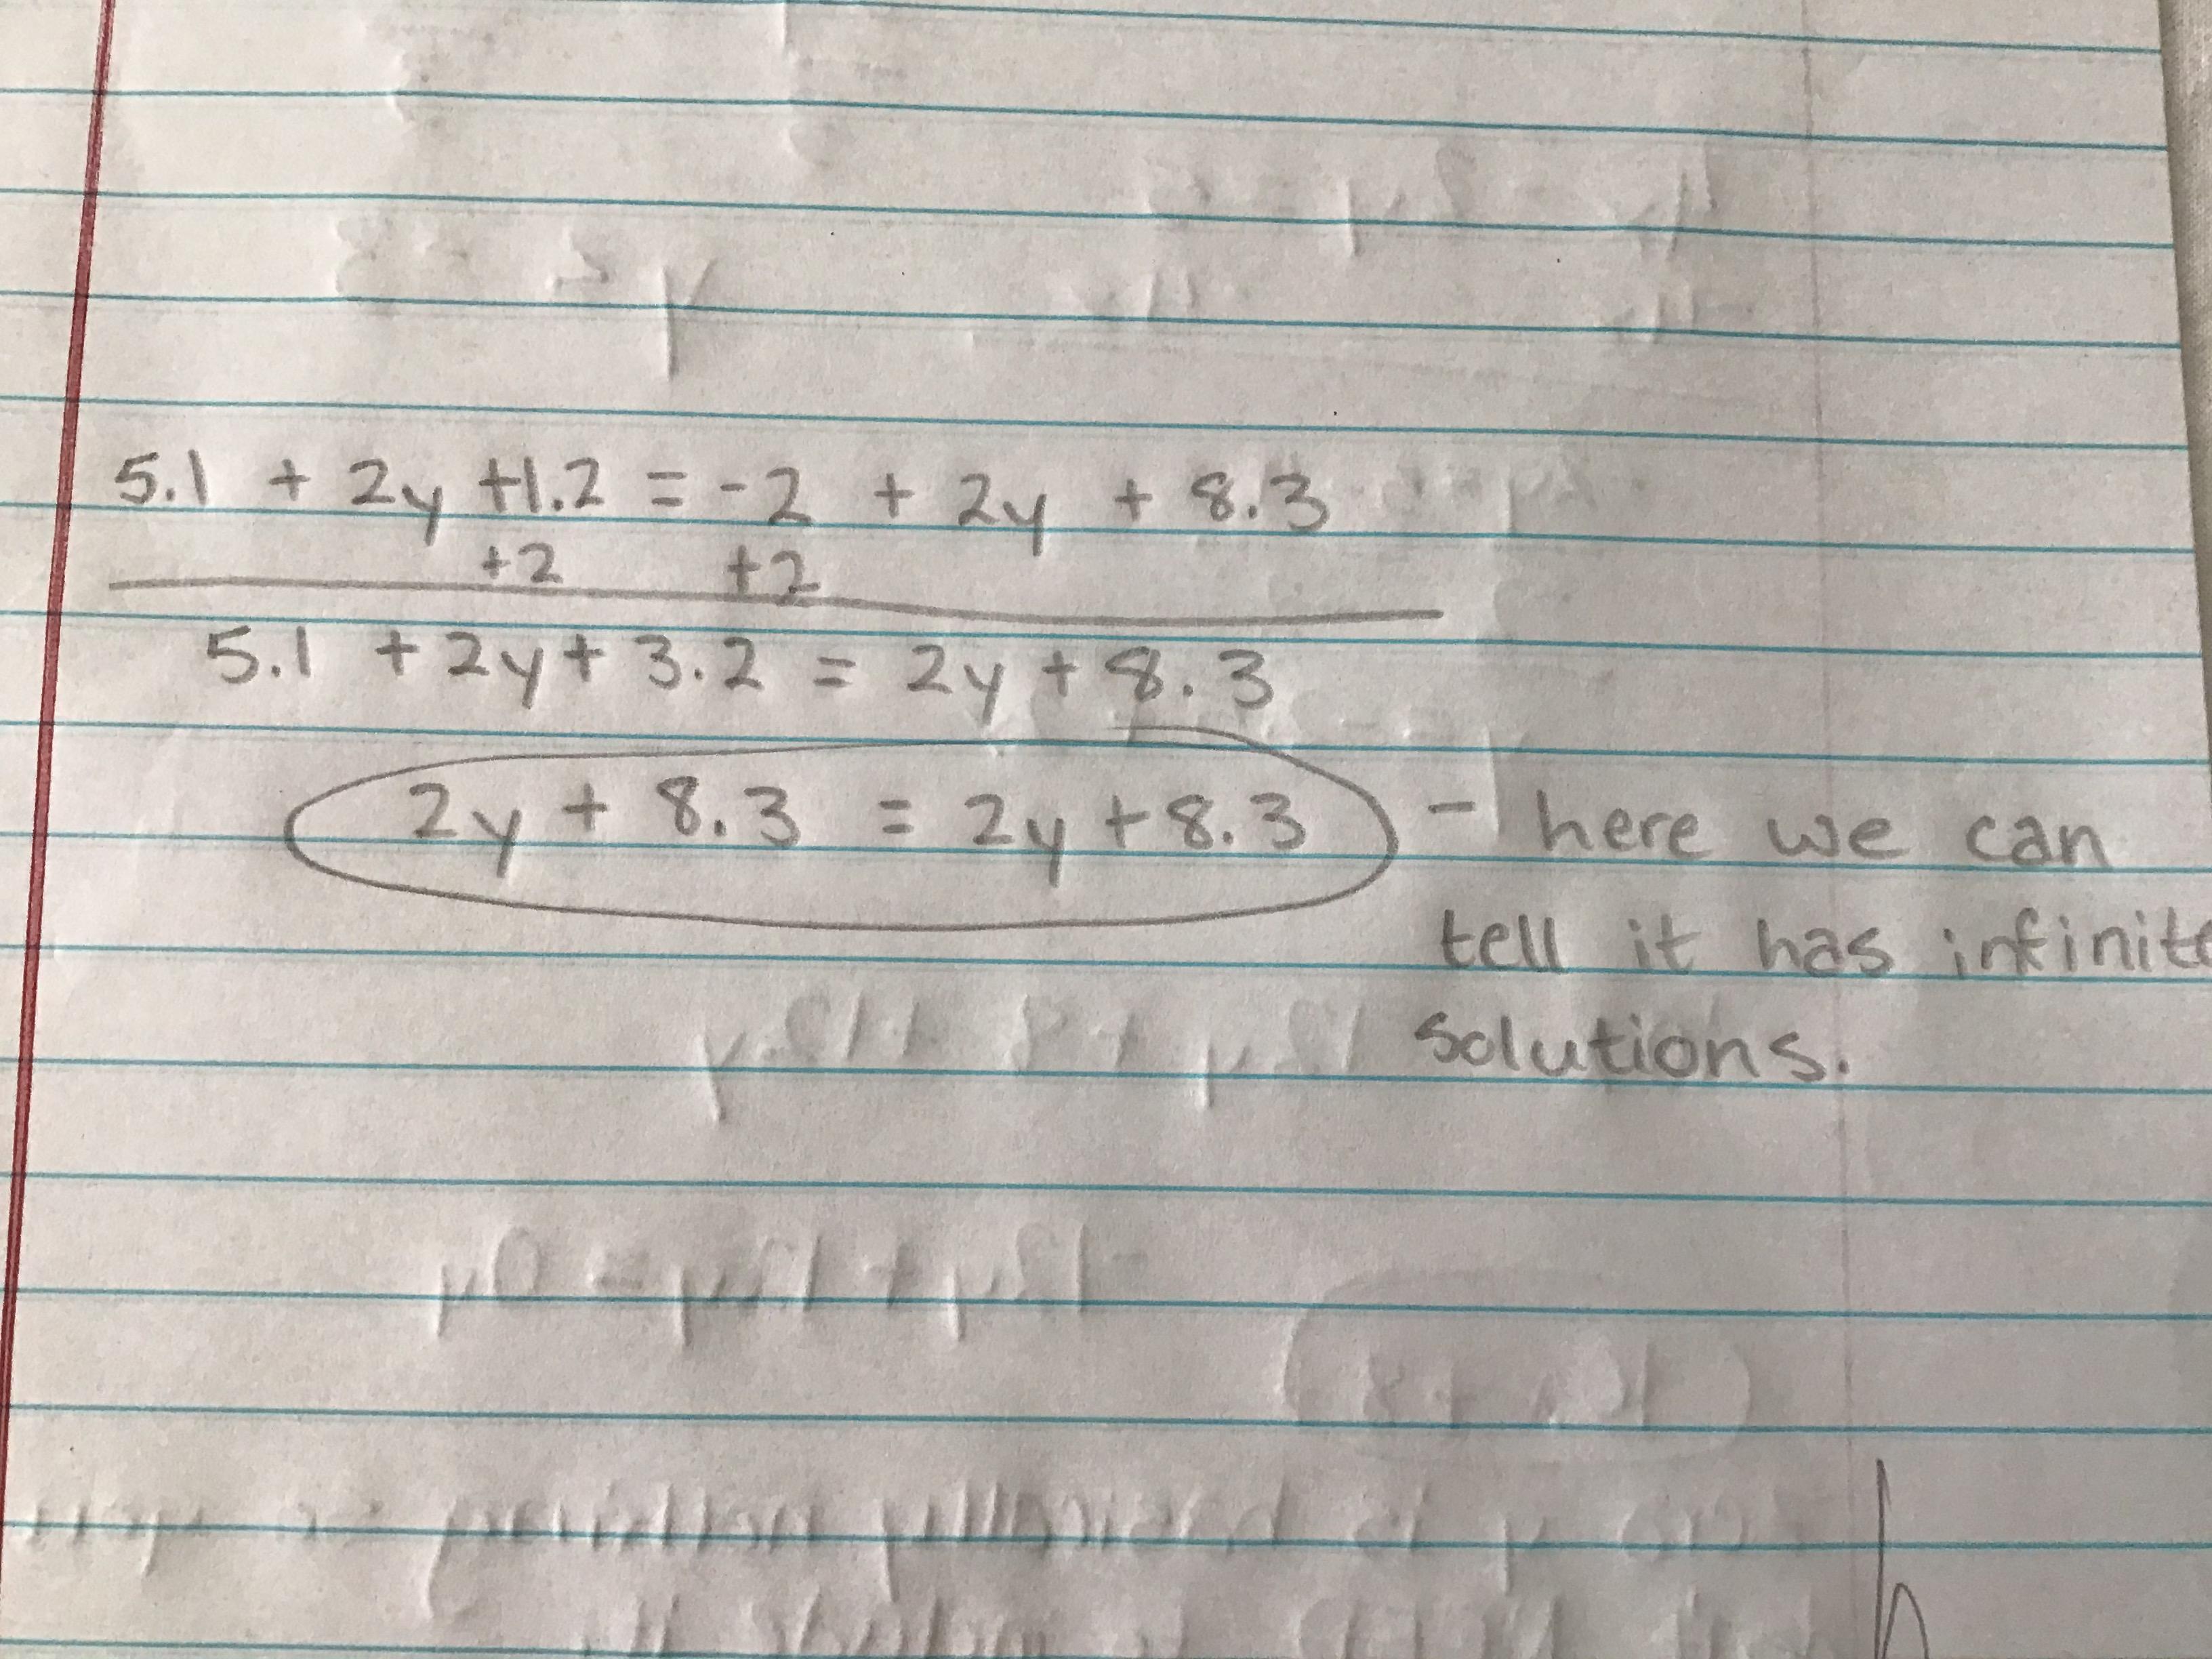 5.1 + 2y +1.2 = -2 + 2y + 8.3
+2 +2
5.1 + 2y + 3.2 = 2y + 8.3
2y + 8.3 = 2y + 8.3 - here we can
tell it has infinite
solutions.